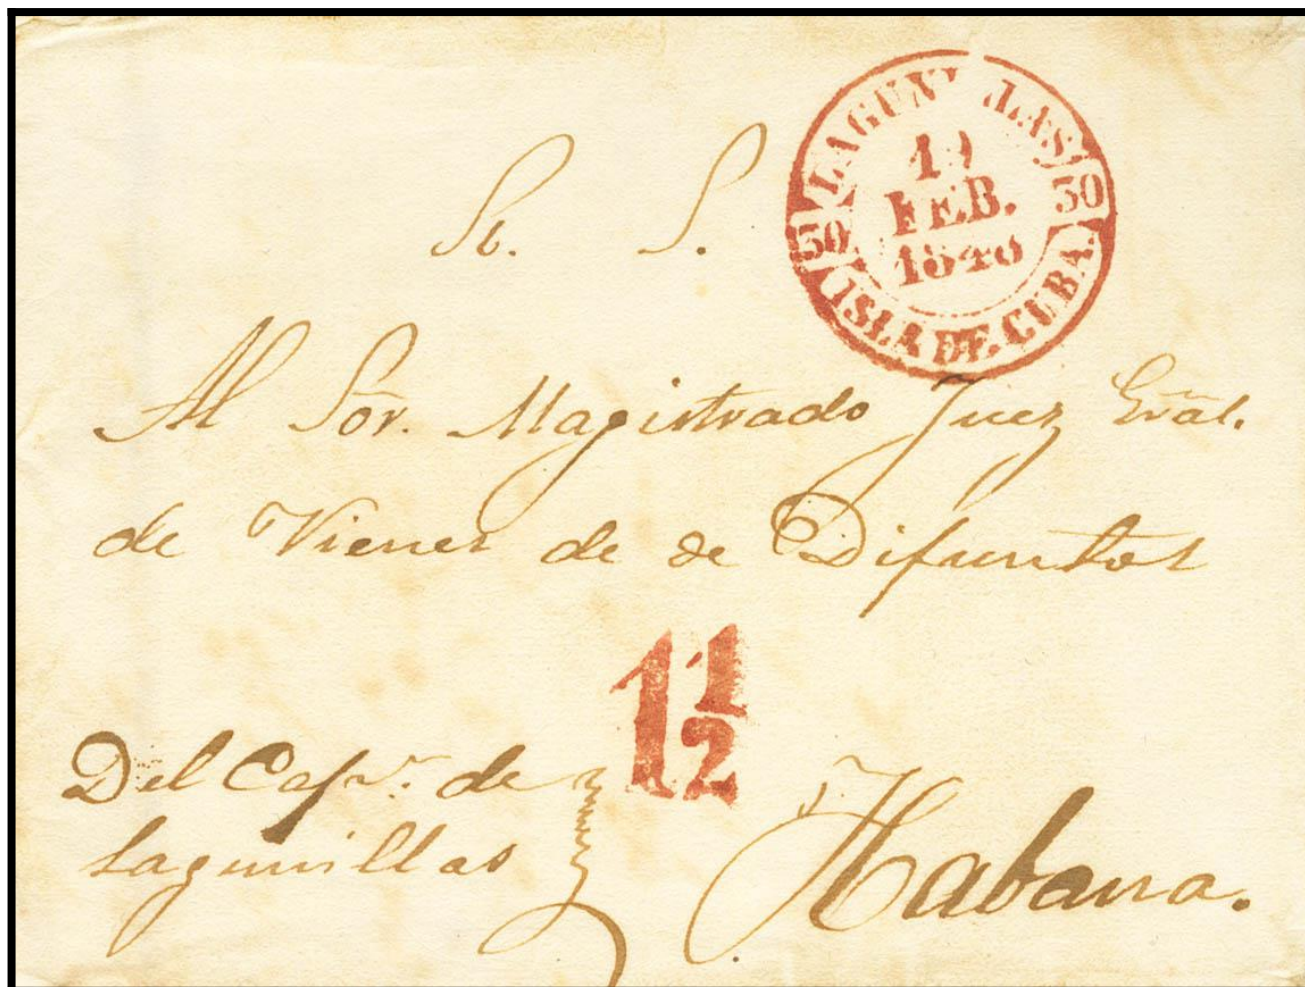 LAGUNILLAS
FEB.
30 30
ISLA DE CUBA.
S. S.
Al Sõr. Magistrado Juez Grãl.
de Vienes de de Difuntos
1 1/2
Del Capn. de
Lagunillas
Habana.